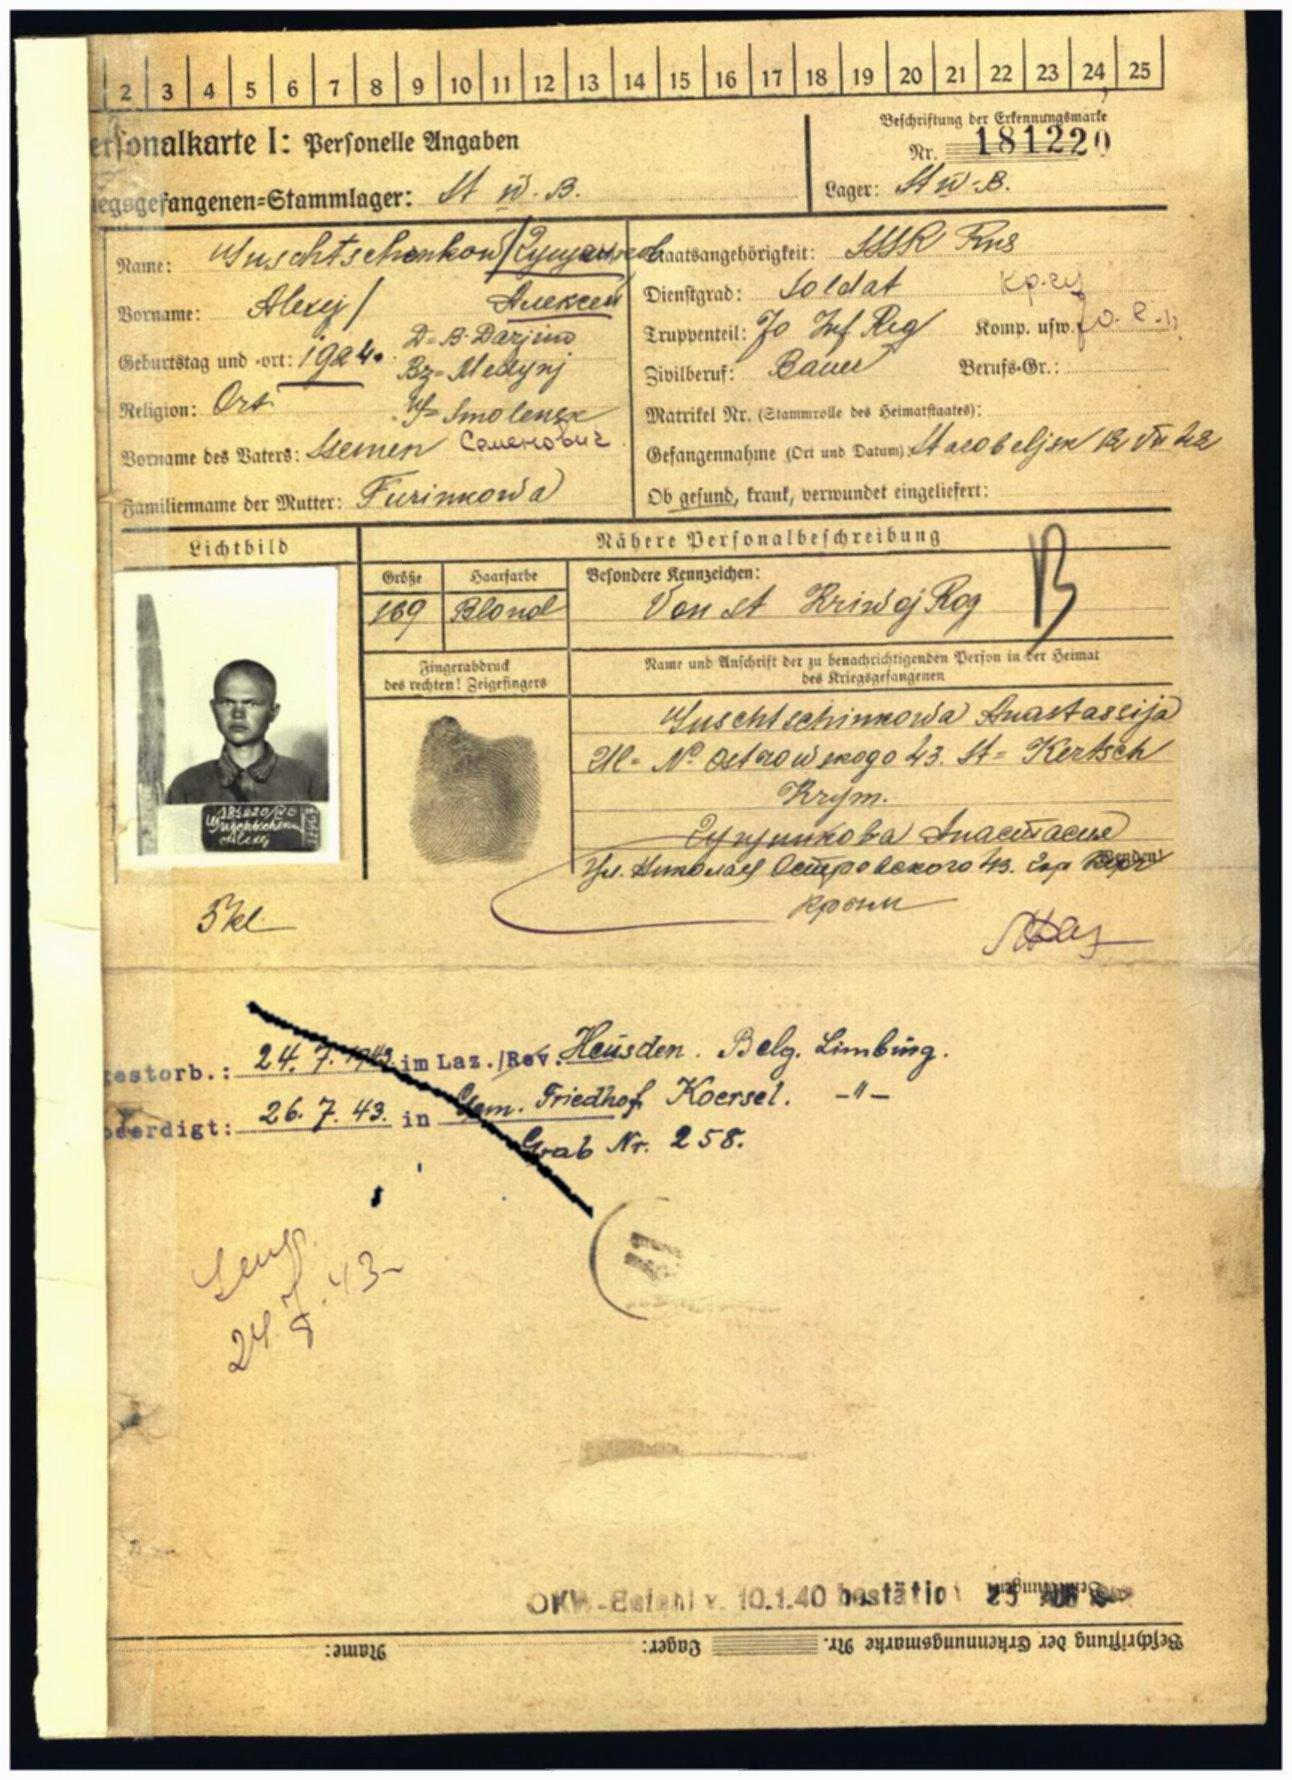 2 3 4 5 6 7 8 9 10 11 12 13 14 15 16 17 18 19 20 21 22 23 24 25
ersonalkarte I: Personelle Angaben
Beschriftung der Erkennungsmarke
Nr. 181220
iegsgefangenen-Stammlager: St VI. B.
Lager: St VI. B.
Name:
Staatsangehörigkeit: SSSR Rus
Vorname: Alexej / Алексей
Dienstgrad: Soldat
Geburtstag und -ort: 1924. D-B-Darjino
Truppenteil: 70 Inf Reg Komp. usw.
Bz= Medynj
Zivilberuf: Bauer Berufs-Gr.:
Religion: Ort
Uf= Smolensk
Matrikel Nr. (Stammrolle des Heimatstaates):
Vorname des Vaters: Semen Семенович
Gefangennahme (Ort und Datum): Starobeljsk 12 VII 42
Familienname der Mutter: Furinkowa
Ob gesund, krank, verwundet eingeliefert:
Lichtbild
Nähere Personalbeschreibung
Größe Haarfarbe Besondere Kennzeichen:
169 Blond Von St Kriwoj Rog
B
Fingerabdruck
des rechten! Zeigefingers
Name und Anschrift der zu benachrichtigenden Person in der Heimat
des Kriegsgefangenen
Anastassija
Ul= N. Ostrowskogo 43. St= Kertsch
Krym.
Анастасия
Ул. Николая Островского 43. гор Керч
Крым
5 kl
estorb.: 24. 7. 1943 im Laz./Rev. Heusden. Belg. Limburg.
beerdigt: 26. 7. 43. in Gem. Friedhof Koersel. -"-
Grab Nr. 258.
24 7. 43
OKW-Befehl v. 10.1.40 bestätigt 25
Bemerkungen:
Beschriftung der Erkennungsmarke Nr. Lager: Name: